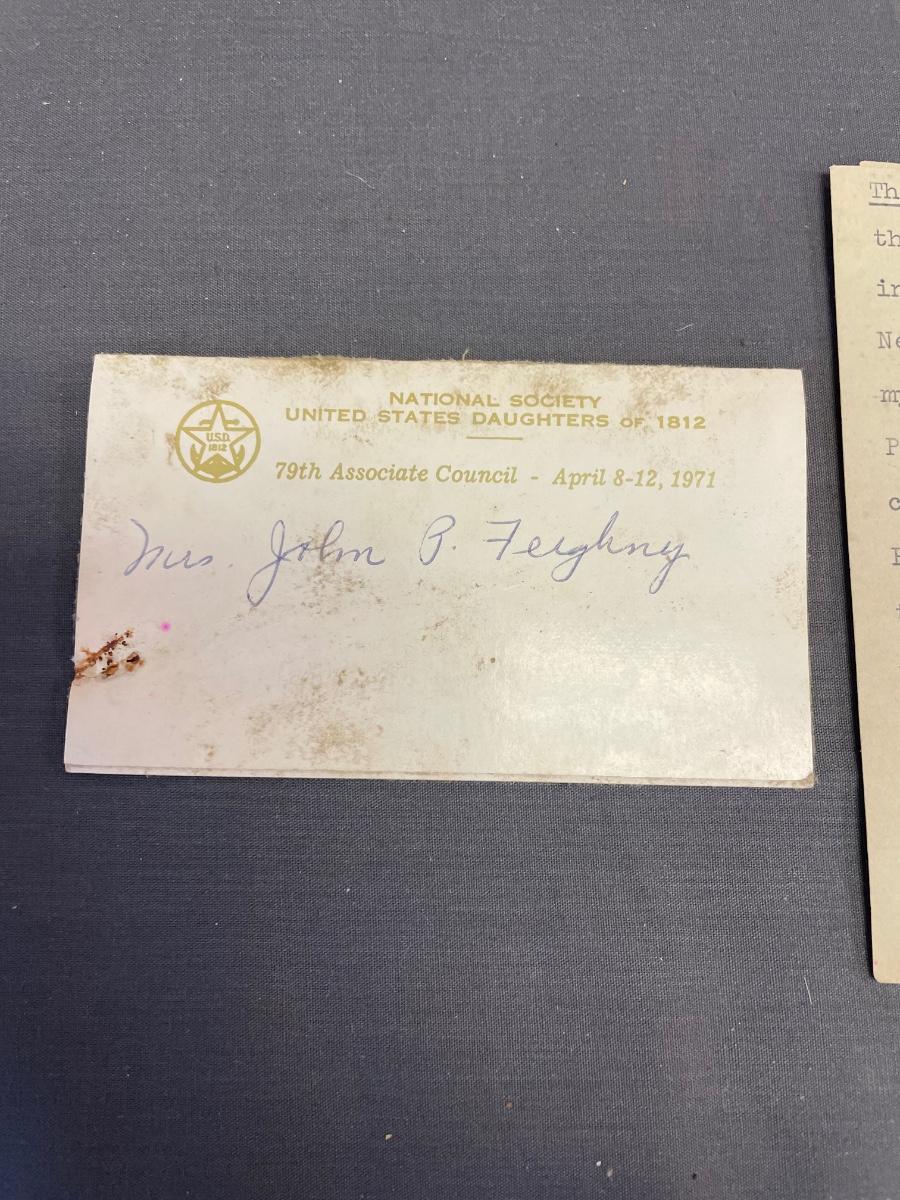 NATIONAL SOCIETY
UNITED STATES DAUGHTERS OF 1812
U.S.D.
1812
79th Associate Council - April 8-12, 1971
Mrs. John P. Feighny
Th
th
in
Ne
my
P
c